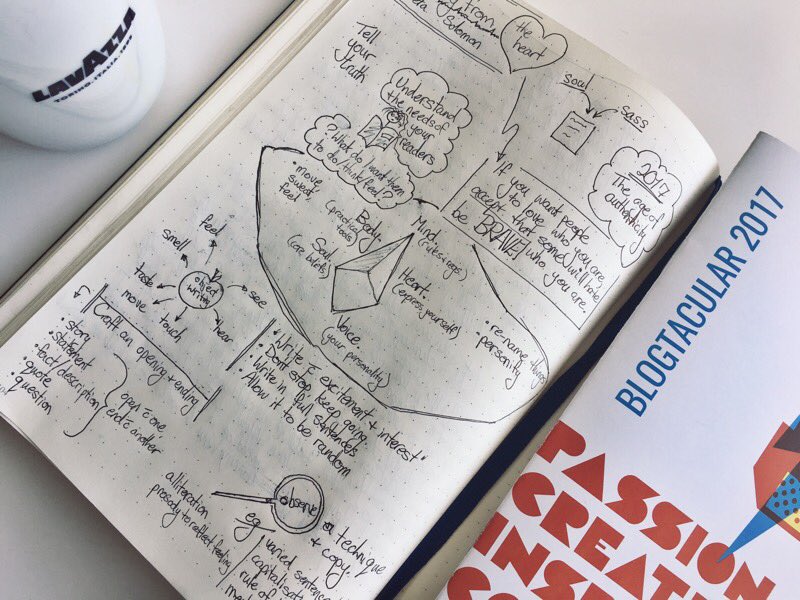 LAVAZZA
TORINO, ITALIA, 1895
from
the
heart
Solomon
Tell
your
truth
soul
sass
Understand
the needs of
your
readers
? What do I want them
to do/think/feel?
2017
The age of
authenticity
If you want people
to love who you are,
accept that some will hate
who you are.
be BRAVE!
• move
sweat
feel
Body
(practical
tools)
Mind
Soul
(core beliefs)
Heart.
(express yourself)
Voice
(your personality)
• rename things
• personify
object
writing
feel
smell
taste
move
touch
hear
see
Craft an opening + ending
• story
• statement
• fact/description
• quote
• question
open c̄ one,
end c̄ another
• Write c̄ excitement + interest
• Don't stop, keep going
• Write in full sentences
• Allow it to be random
observe
a technique
+ copy.
alliteration
prosody to reflect feeling
eg
varied sentence
capitalisation
rule of
BLOGTACULAR 2017
PASSION
CREATI
INSP
CO